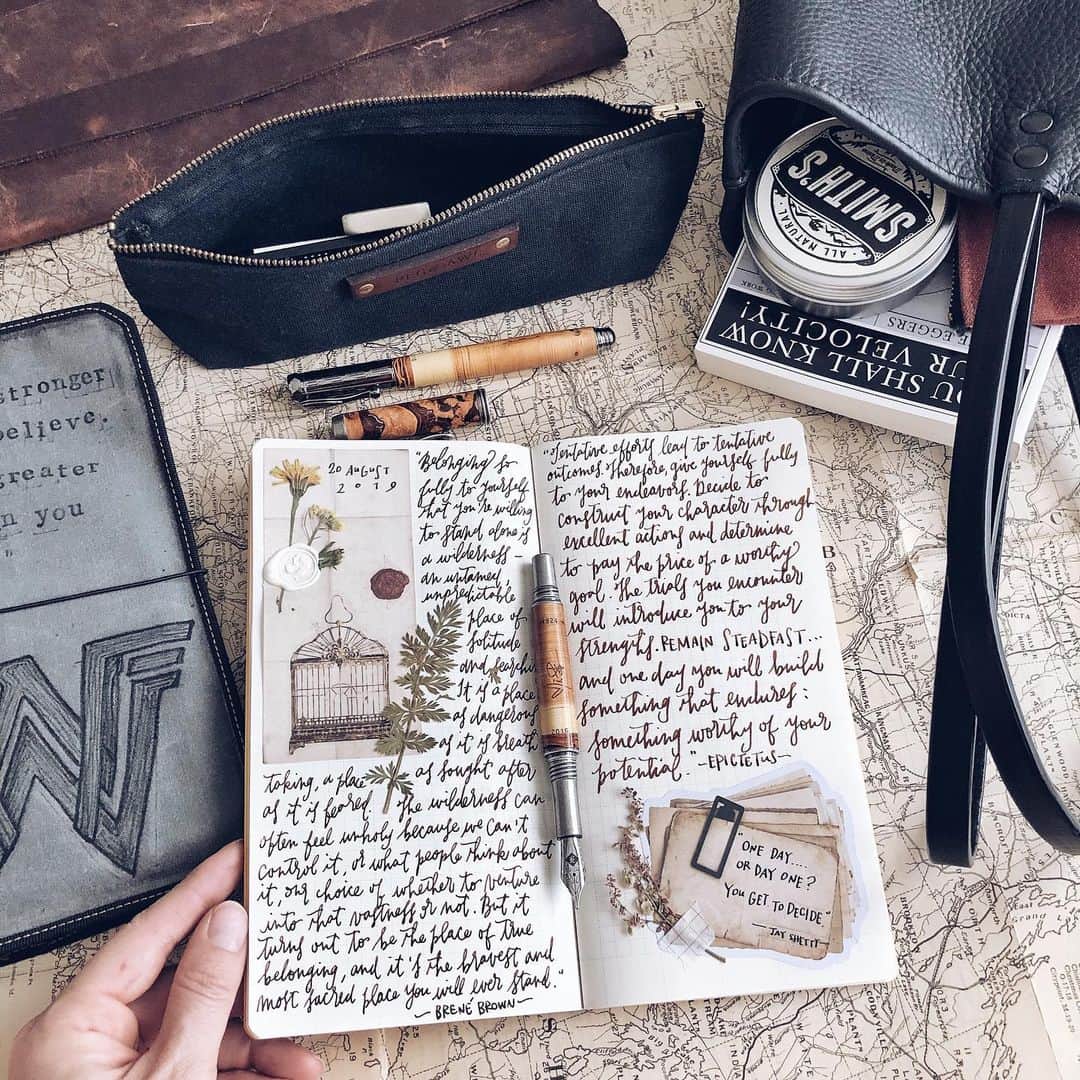 stronger
believe.
greater
you
SMITH'S
ALL NATURAL
EGGERS
U SHALL KNOW
UR VELOCITY!
20 AUGUST
2019
"Belonging so
fully to yourself
that you're willing
to stand alone is
a wilderness –
an untamed,
unpredictable
place of
solitude
and searching
It is a place
as dangerous
as it is breath
taking, a place as sought after
as it is feared. The wilderness can
often feel unholy because we can't
control it, or what people think about
it, our choice of whether to venture
into that vastness or not. But it
turns out to be the place of true
belonging, and it's the bravest and
most sacred place you will ever stand."
— BRENÉ BROWN —
"Tentative efforts lead to tentative
outcomes. Therefore, give yourself fully
to your endeavors. Decide to
construct your character through
excellent actions and determine
to pay the price of a worthy
goal. The trials you encounter
will introduce you to your
strengths. REMAIN STEADFAST...
and one day you will build
something that endures:
something worthy of your
potential." —EPICTETUS—
"ONE DAY....
OR DAY ONE?
YOU GET TO DECIDE"
— JAY SHETTY
2016
W